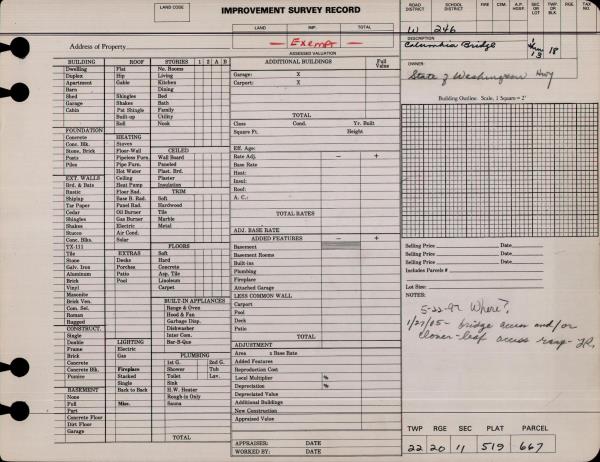 LAND CODE
IMPROVEMENT SURVEY RECORD
LAND IMP. TOTAL
— Exempt —
ASSESSED VALUATION
Address of Property
ROAD DISTRICT SCHOOL DISTRICT FIRE CEM. A.P. HOSP. SEC OR LOT TWP. OR BLK RGE. TAX NO.
W 246
DESCRIPTION
Columbia Bridge 1 thru 13 18
OWNER:
State of Washington Hwy
Building Outline: Scale, 1 Square = 2'
BUILDING ROOF STORIES 1 2 A B
Dwelling Flat No. Rooms
Duplex Hip Living
Apartment Gable Kitchen
Barn Dining
Shed Shingles Bed
Garage Shakes Bath
Cabin Pat Shingle Family
Built-up Utility
Roll Nook
FOUNDATION
Concrete HEATING
Conc. Blk. Stoves CEILED
Stone, Brick Floor-Wall Wall Board
Posts Pipeless Furn. Paneled
Piles Pipe Furn. Plast. Brd.
Hot Water Plaster
EXT. WALLS Ceiling Insulation
Brd. & Bats Heat Pump TRIM
Rustic Floor Rad. Soft
Shiplap Base B. Rad. Hardwood
Tar Paper Panel Rad. Tile
Cedar Oil Burner Marble
Shingles Gas Burner Metal
Shakes Electric
Stucco Air Cond.
Conc. Blks. Solar
TX-111 FLOORS
Tile EXTRAS Soft
Stone Decks Hard
Galv. Iron Porches Concrete
Aluminum Patio Asp. Tile
Brick Pool Linoleum
Vinyl Carpet
Masonite
Brick Ven. BUILT-IN APPLIANCES
Com. Sel. Range & Oven
Roman Hood & Fan
Ragged Garbage Disp.
CONSTRUCT. Dishwasher
Single Inter Com.
Double LIGHTING Bar-B-Que
Frame Electric
Brick Gas PLUMBING
Concrete 1st G. 2nd G.
Concrete Blk. Fireplace Shower Tub
Pumice Stacked Toilet Lav.
Single Sink
BASEMENT Back to Back H.W. Heater
None Rough-in Only
Full Misc. Sauna
Part
Concrete Floor
Dirt Floor
Garage
TOTAL
ADDITIONAL BUILDINGS Full Value
Garage: X
Carport: X
TOTAL
Class Cond. Yr. Built
Square Ft. Height
Eff. Age:
Rate Adj. — +
Base Rate
Heat:
Insul:
Roof:
A. C.:
TOTAL RATES
ADJ. BASE RATE
ADDED FEATURES — +
Basement
Basement Rooms
Built-ins
Plumbing
Fireplace
Attached Garage
LESS COMMON WALL
Carport
Pool
Deck
Patio
TOTAL
ADJUSTMENT
Area x Base Rate
Added Features
Reproduction Cost
Local Multiplier %
Depreciation %
Depreciated Value
Additional Buildings
New Construction
Appraised Value
APPRAISER: DATE
WORKED BY: DATE
Selling Price Date
Selling Price Date
Selling Price Date
Includes Parcels #
Lot Size:
NOTES:
5-22-97 Where?
1/27/05 - bridge access and/or
clover-leaf access ramp - JR.
TWP RGE SEC PLAT PARCEL
22 20 11 519 667